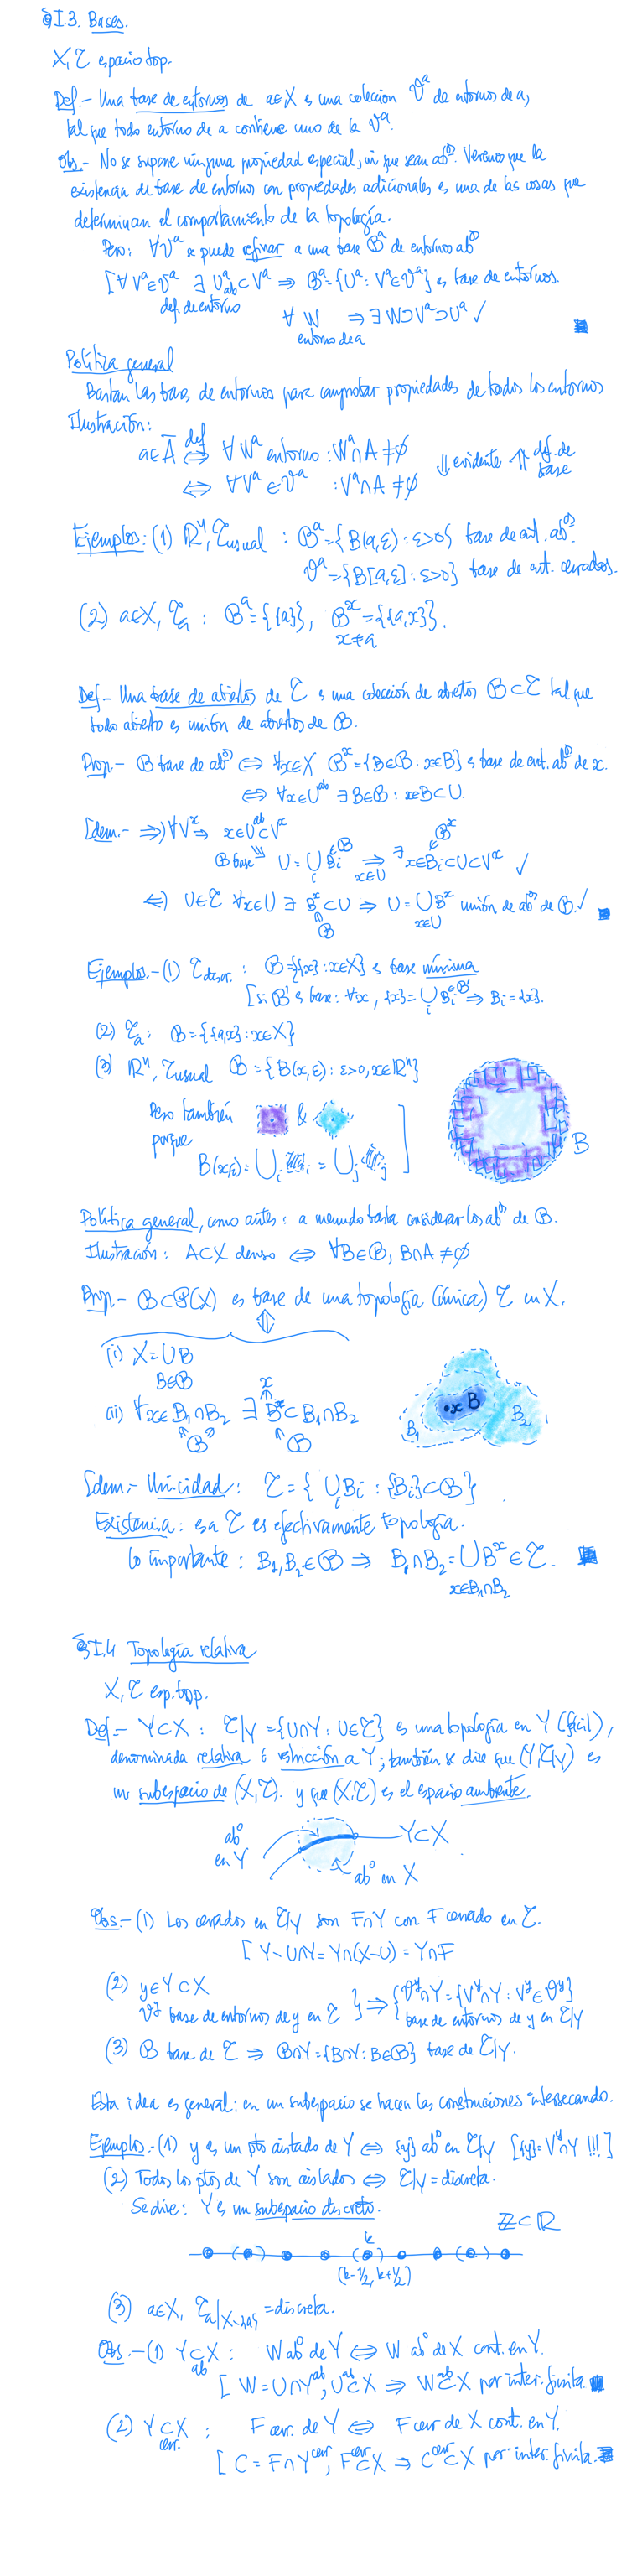 §I.3. Bases.
X, τ espacio top.
Def.- Una base de entornos de a∈X es una colección 𝒱ᵃ de entornos de a,
tal que todo entorno de a contiene uno de la 𝒱ᵃ.
Obs.- No se supone ninguna propiedad especial, ni que sean abᵒˢ. Veremos que la
existencia de base de entornos con propiedades adicionales es una de las cosas que
determinan el comportamiento de la topología.
Pero: ∀𝒱ᵃ se puede refinar a una base ℬᵃ de entornos abᵒˢ
[∀Vᵃ∈𝒱ᵃ ∃ Uᵃ ⊂ Vᵃ ⇒ ℬᵃ={Uᵃ : Vᵃ∈𝒱ᵃ} es base de entornos.
ab
def. de entorno
∀ W ⇒ ∃ W⊃Vᵃ⊃Uᵃ ✓
entorno de a
Política general
Bastan las bases de entornos para comprobar propiedades de todos los entornos
Ilustración:
a∈Ā ⇔ (def) ∀Wᵃ entorno : Wᵃ∩A≠∅
⇔ ∀Vᵃ∈𝒱ᵃ : Vᵃ∩A≠∅ ⇓ evidente ⇑ def. de base
Ejemplos: (1) ℝⁿ, τusual : ℬᵃ={B(a,ε) : ε>0} base de ent. abᵒˢ.
𝒱ᵃ={B[a,ε] : ε>0} base de ent. cerrados.
(2) a∈X, τₐ : ℬᵃ={{a}}, ℬˣ={{a,x}}.
x≠a
Def- Una base de abiertos de τ es una colección de abiertos ℬ⊂τ tal que
todo abierto es unión de abiertos de ℬ.
Prop- ℬ base de abᵒˢ ⇔ ∀x∈X ℬˣ={B∈ℬ : x∈B} es base de ent. abᵒˢ de x.
⇔ ∀x∈Uᵃᵇ ∃B∈ℬ : x∈B⊂U.
[dem.- ⇒) ∀Vˣ ⇒ x∈Uᵃᵇ⊂Vˣ
ℬ base ⇒ U = ⋃ᵢ Bᵢ∈ℬ ⇒ ∃ x∈Bᵢ⊂U⊂Vˣ ✓
x∈U
ℬˣ
⇐) U∈τ ∀x∈U ∃ Bˣ⊂U ⇒ U = ⋃ Bˣ unión de abᵒˢ de ℬ. ✓
ℬ x∈U
Ejemplos.- (1) τdiscr. : ℬ={{x} : x∈X} es base mínima
[si ℬ' es base: ∀x, {x}=⋃ᵢ Bᵢ∈ℬ' ⇒ Bᵢ={x}.
(2) τₐ : ℬ={{a,x} : x∈X}
(3) ℝⁿ, τusual ℬ={B(x,ε) : ε>0, x∈ℝⁿ}
Pero también &
porque
B(x,ε)=⋃ᵢ ᵢ = ⋃ⱼ ⱼ ]
B
Política general, como antes: a menudo basta considerar los abᵒˢ de ℬ.
Ilustración: A⊂X denso ⇔ ∀B∈ℬ, B∩A≠∅
Prop- ℬ⊂𝒫(X) es base de una topología (única) τ en X.
⇕
(i) X=⋃B
B∈ℬ
(ii) ∀x∈B₁∩B₂ ∃ Bˣ⊂B₁∩B₂
x
ℬ ℬ
B₁ ·x B B₂
[dem.- Unicidad: τ={⋃ᵢ Bᵢ : {Bᵢ}⊂ℬ}
Existencia: esa τ es efectivamente topología.
Lo importante: B₁,B₂∈ℬ ⇒ B₁∩B₂=⋃Bˣ∈τ.
x∈B₁∩B₂
§I.4 Topología relativa
X, τ esp. top.
Def.- Y⊂X : τ|Y={U∩Y : U∈τ} es una topología en Y (fácil),
denominada relativa ó restricción a Y; también se dice que (Y,τ|Y) es
un subespacio de (X,τ). y que (X,τ) es el espacio ambiente.
abᵒ en Y
Y⊂X
abᵒ en X
Obs.- (1) Los cerrados en τ|Y son F∩Y con F cerrado en τ.
[Y∖U∩Y=Y∩(X∖U)=Y∩F
(2) y∈Y⊂X
𝒱ʸ base de entornos de y en τ } ⇒ { 𝒱ʸ∩Y={Vʸ∩Y : Vʸ∈𝒱ʸ}
base de entornos de y en τ|Y
(3) ℬ base de τ ⇒ ℬ∩Y={B∩Y : B∈ℬ} base de τ|Y.
Esta idea es general: en un subespacio se hacen las construcciones intersecando.
Ejemplos.- (1) y es un pto aislado de Y ⇔ {y} abᵒ en τ|Y [{y}=Vʸ∩Y !!!]
(2) Todos los ptos de Y son aislados ⇔ τ|Y=discreta.
Se dice: Y es un subespacio discreto.
ℤ⊂ℝ
k
(k-1/2, k+1/2)
(3) a∈X, τₐ|X∖{a}=discreta.
Obs.- (1) Y⊂X : W abᵒ de Y ⇔ W abᵒ de X cont. en Y.
ab
[W=U∩Yᵃᵇ, U⊂ᵃᵇX ⇒ W⊂ᵃᵇX por inter. finita.
(2) Y⊂X : F cerr. de Y ⇔ F cerr de X cont. en Y.
cerr.
[C=F∩Yᶜᵉʳʳ, F⊂ᶜᵉʳʳX ⇒ C⊂ᶜᵉʳʳX por inter. finita.